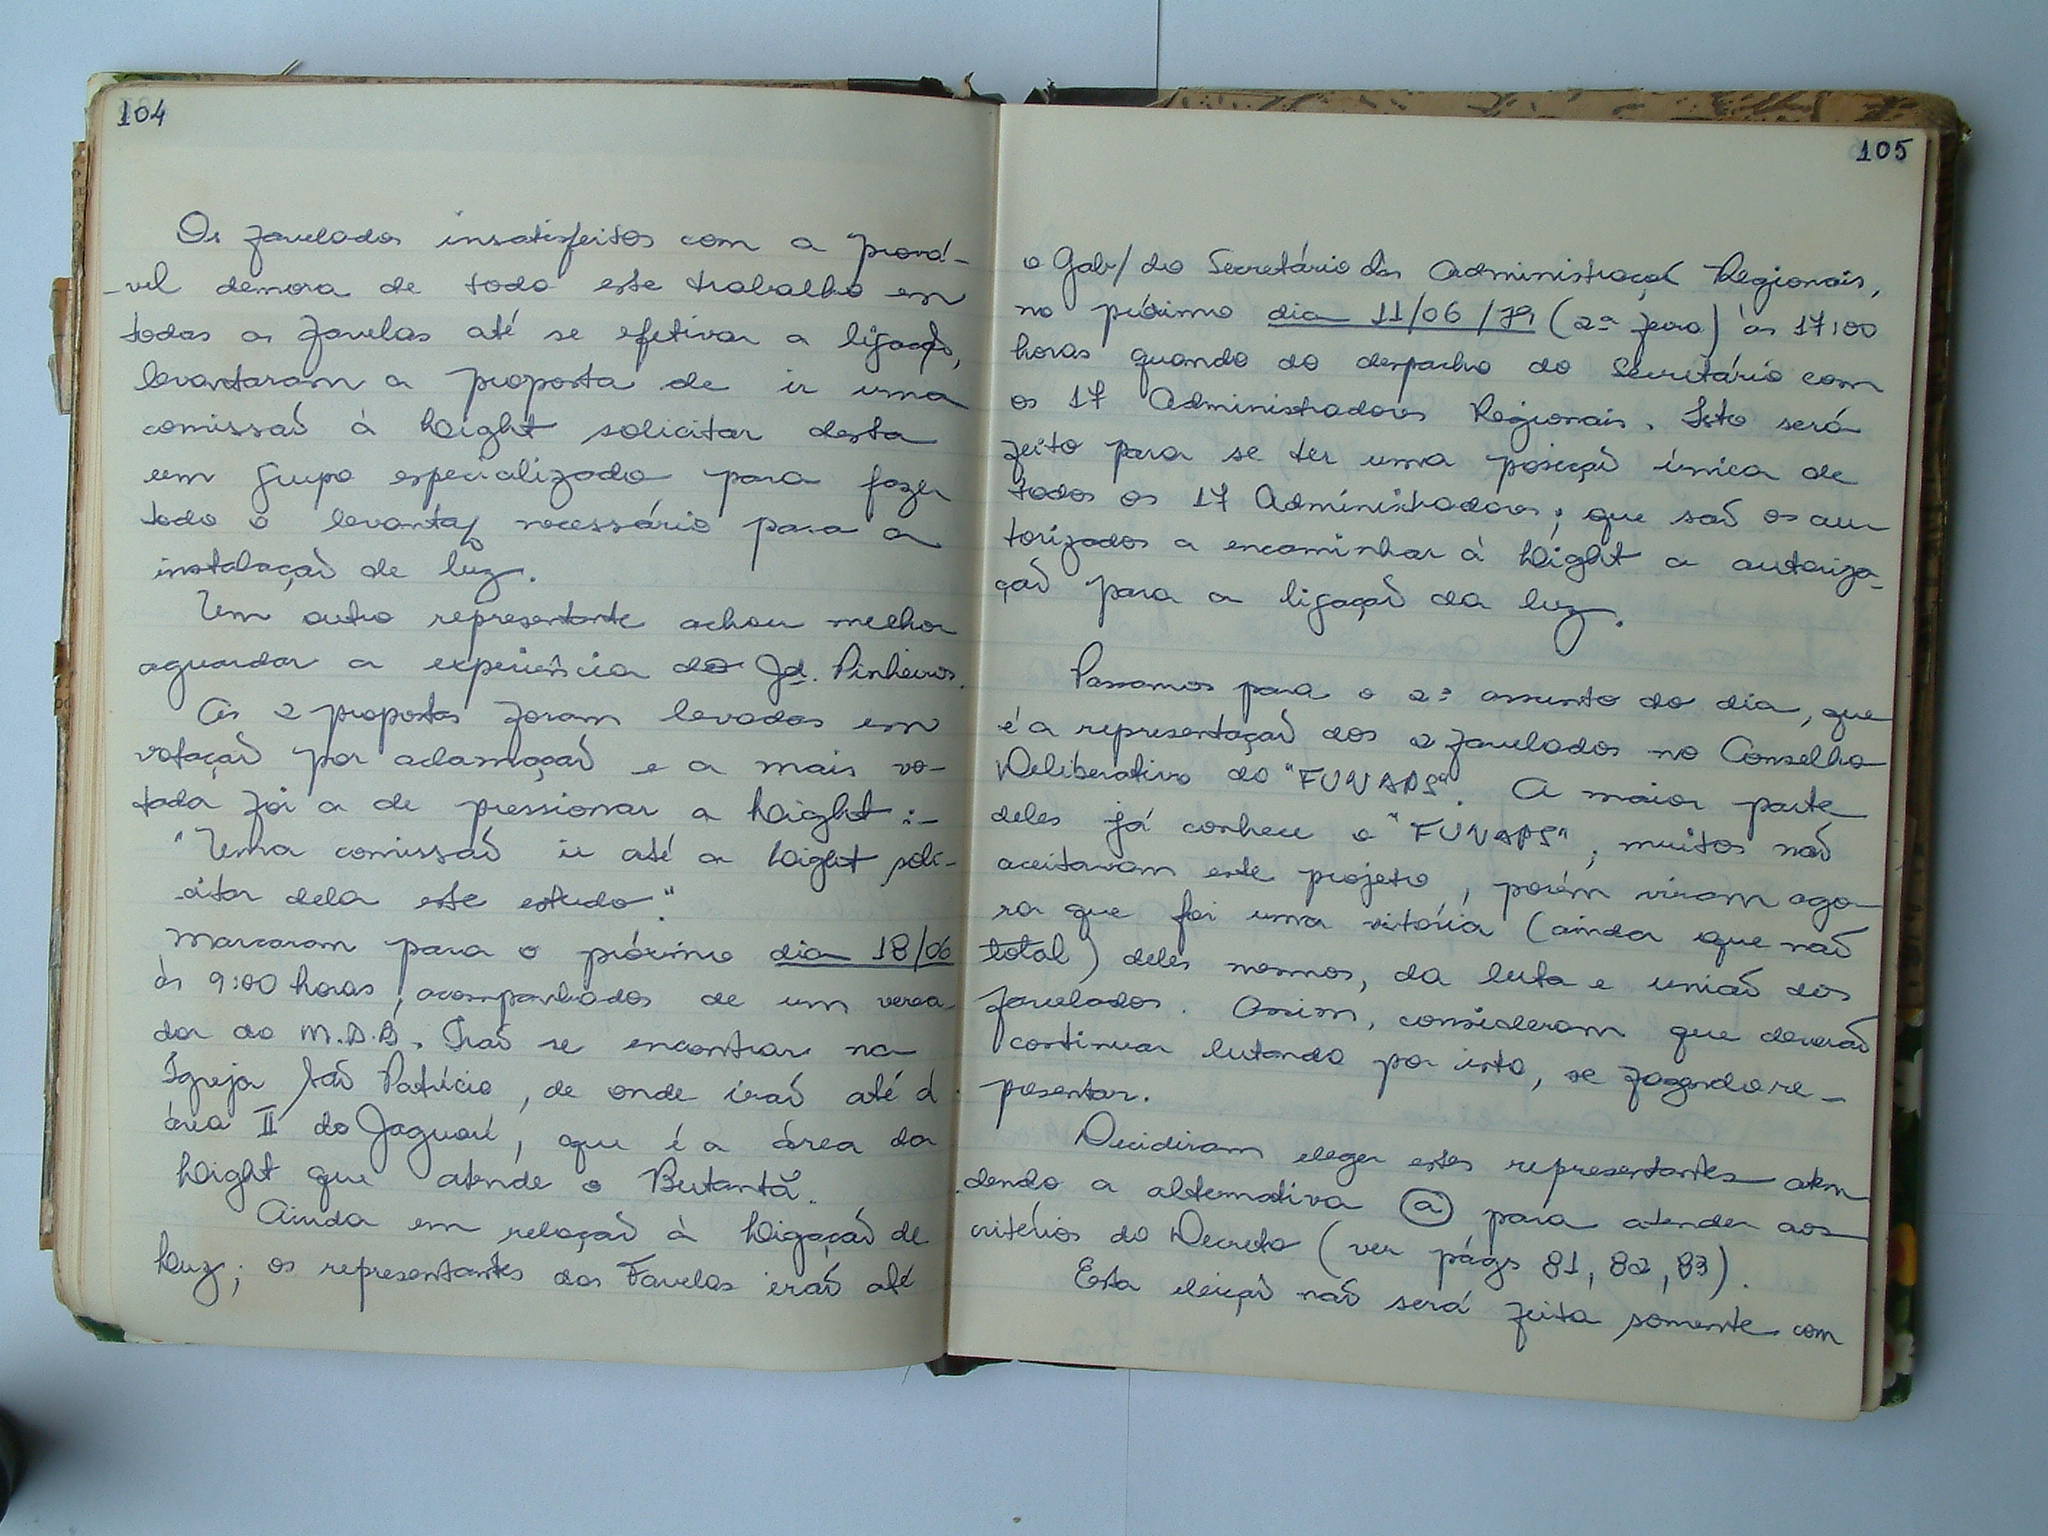 104
Os favelados insatisfeitos com a prová-
-vel demora de todo este trabalho em
todas as favelas até se efetivar a ligação,
levantaram a proposta de ir uma
comissão à Light solicitar desta
um grupo especializado para fazer
todo o levantaº necessário para a
instalação de luz.
Um outro representante achou melhor
aguardar a experiência do Jd. Pinheiros.
As 2 propostas foram levadas em
votação por aclamação e a mais vo-
tada foi a de pressionar a Light :-
"Uma comissão ir até a Light soli-
citar dela este estudo."
Marcaram para o próximo dia 18/06
às 9:00 horas, acompanhados de um verea-
dor do M.D.B. Irão se encontrar na
Igreja São Patrício, de onde irão até à
área II do Jaguaré, que é a área da
Light que atende o Butantã.
Ainda em relação à Ligação de
Luz; os representantes das Favelas irão até
105
o Gab/ do Secretário das Administração Regionais,
no próximo dia 11/06/79 (2ª feira) às 17:00
horas quando do despacho do Secretário com
os 17 Administradores Regionais. Isto será
feito para se ter uma posição única de
todos os 17 Administradores; que são os au
torizados a encaminhar à Light a autoriza-
ção para a ligação da luz.
Passamos para o 2º assunto do dia, que
é a representação dos 2 favelados no Conselho
Deliberativo do "FUNAPS". A maior parte
deles já conhece o "FUNAPS"; muitos não
aceitavam este projeto, porém viram ago-
ra que foi uma vitória (ainda que não
total) deles mesmos, da luta e união dos
favelados. Assim, consideram que deverão
continuar lutando por isto, se fazendo re-
presentar.
Decidiram eleger estes representantes aten
dendo a alternativa (a) para atender aos
critérios do Decreto (ver págs 81, 82, 83).
Esta eleição não será feita somente com